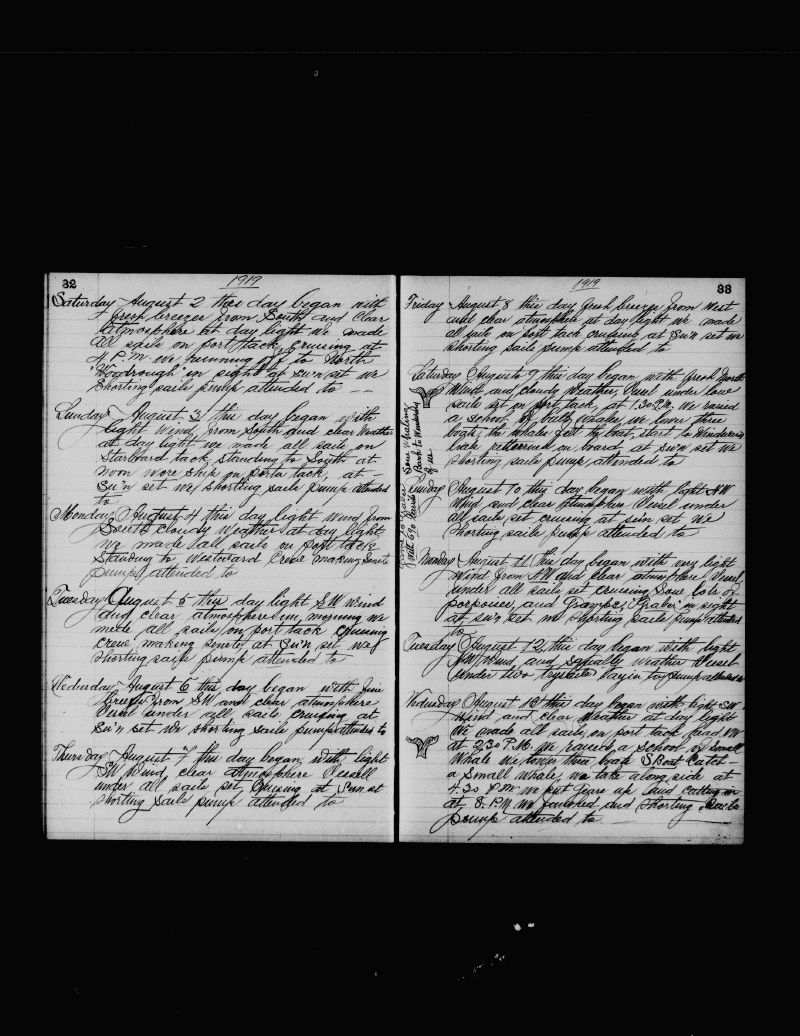 32
1919
Saturday August 2 this day began with
fresh breezes from South and Clear
atmosphere at day light we made
all sails on port tack, Cruising at
4 P.M. we running off to North
"Woodrough" in sight at su'n set we
Shorting sails pump attended to
Sunday August 3 this day began with
light wind, from South and clear Weather
at day light we made all sails on
Starboard tack standing to South at
noon wore ship on porta tack, at
su'n set we shorting sails pump attended
to
Monday August 4 this day light wind from
South cloudy weather at day light
we made all sails on port tack
Standing to Westward Crew making Senete
pump attended to
Tuesday August 5 this day light SW Wind
and clear atmosphere in morning we
made all sails, on port tack Cruising
Crew making senete at su'n set we
Shorting sails pump attended to
Wednesday August 6 this day began with fine
breeze from SW and clear atmosphere
Vessel under all sails cruising at
su'n set we shorting sails pump attended to
Thursday August 7 this day began, with light
SW Wind, clear atmosphere Vessell
under all sails set, Cruising at Sun set
Shorting Sails pump attended to
1919
33
Friday August 8 this day fresh breezes from West
and clear atmosphere at day light we made
all sails on port tack cruising at su'n set we
shorting sails pump attended to
Saturday August 9 this day began with fresh North
Wind, and cloudy Weather, Vessel under low
sails set on port tack, at 1.30 P.M. We raised
a school of whales, we lower three
boats, the whales the boat, start to Windward
returned on board at su'n set we
shorting sails pump attended to
Whaling
Back to Windward
of us
with 690 barrels
Sunday August 10 this day began with light NW
Wind and clear atmosphere Vessel under
all sails set cruising at sun set We
shorting sails pump attended to
Monday August 11 this day began with very light
Wind from NW and clear atmosphere Vessel
under all sails set cruising Saw lots of
porpoises, and Grampos, "Graber" in sight
at su'n set we shorting sails pump attended
to
Tuesday August 12, this day began with light
NW Wind, and squally weather Vessel
under two laying to pump attended to
Wednesday August 13 this day began with light SW
Wind and clear Weather at day light
We made all sails, on port tack head NW
at 2,30 P.M. We raised a school of Small
Whale we lower three boats S Boat Catch
a Small Whale, we take along side at
4.30 P.M. we put gears up and Cutting in
at 8 P.M. We finished and Shorting Sails
pump attended to